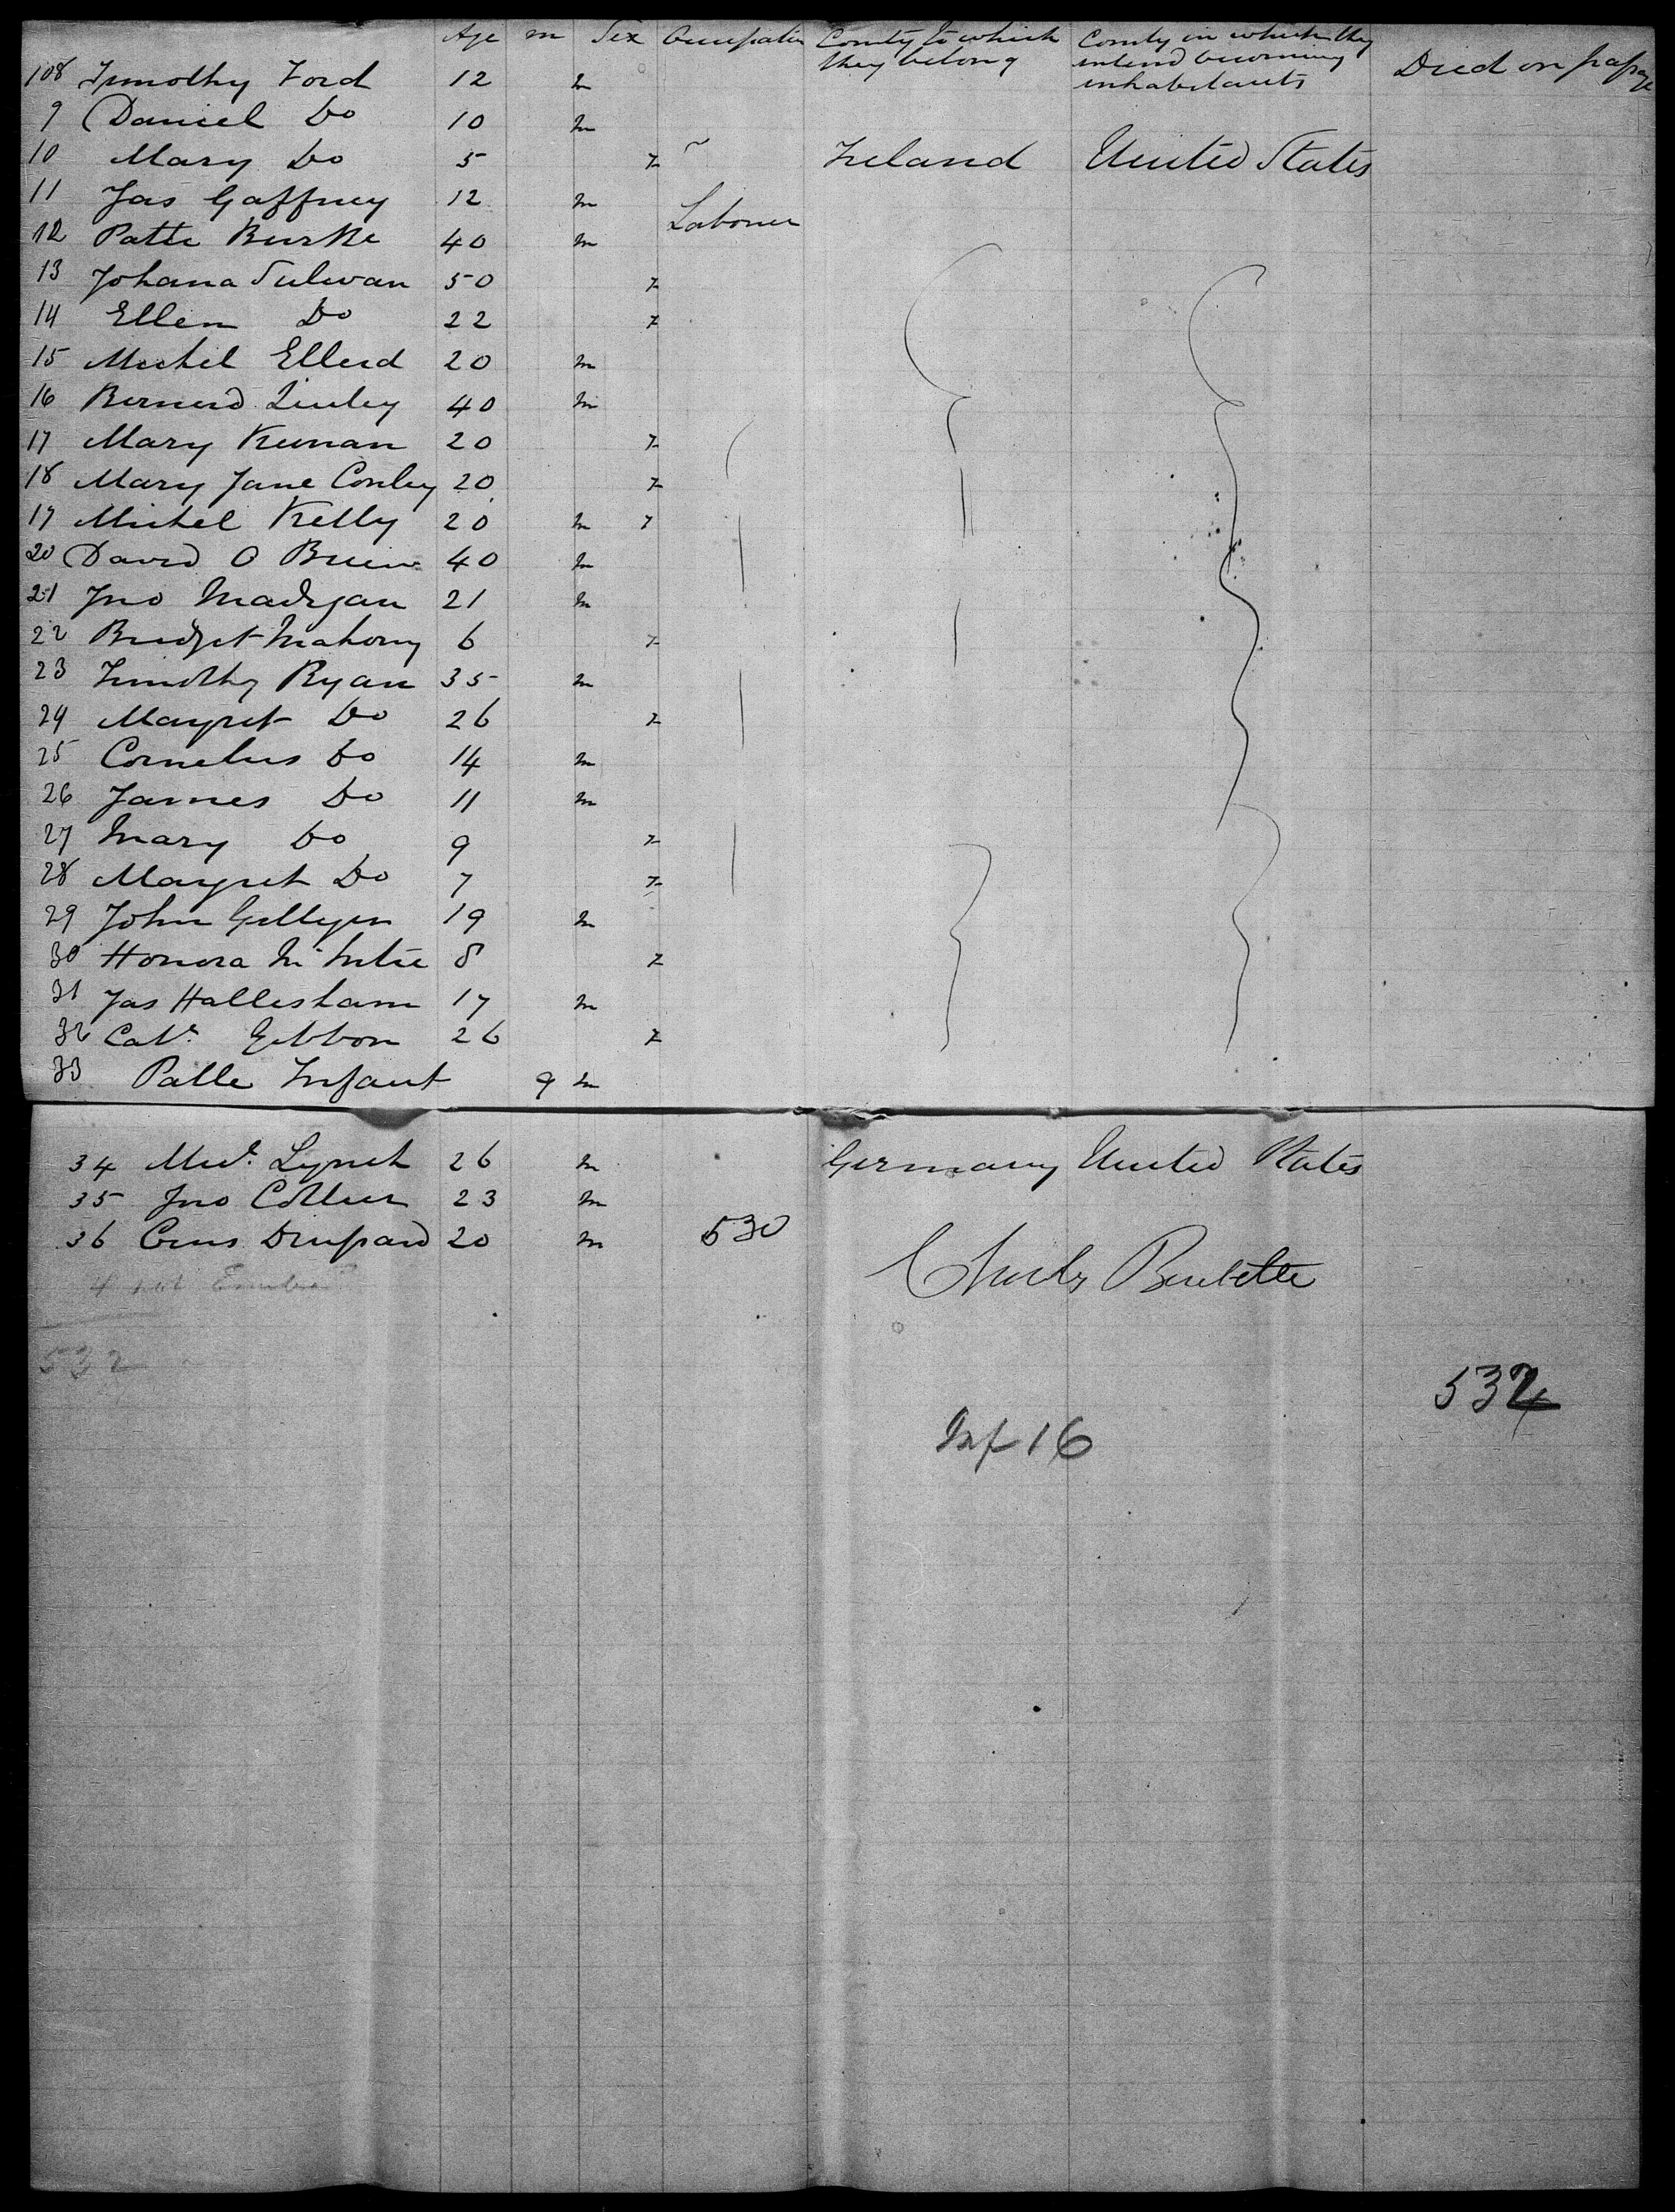 Age m Sex Occupation County to which they belong County in which they intend becoming inhabitants Died on passage
108 Timothy Ford 12 m
9 Daniel Do 10 m
10 Mary Do 5 f Ireland United States
11 Jas Gaffney 12 m
12 Patk Burke 40 m Laborer
13 Johana Sulivan 50 f
14 Ellen Do 22 f
15 Michel Ellerd 20 m
16 Bernerd Linley 40 m
17 Mary Keenan 20 f
18 Mary Jane Conley 20 f
19 Michel Kelly 20 m f
20 David O Brien 40 m
21 Jno Madigan 21 m
22 Bridget Mahony 6 f
23 Timothy Ryan 35 m
24 Margret Do 26 f
25 Cornelus Do 14 m
26 James Do 11 m
27 Mary Do 9 f
28 Margret Do 7 f
29 John Gilligen 19 m
30 Honora 8 f
31 Jas Hallesham 17 m
32 Cath Gibbon 26 f
33 Patk Infant 9 m
34 Lynch 26 m Germany United States
35 Jno Collier 23 m
36 20 m 530
Charles
4 not
532
532
Inf 16